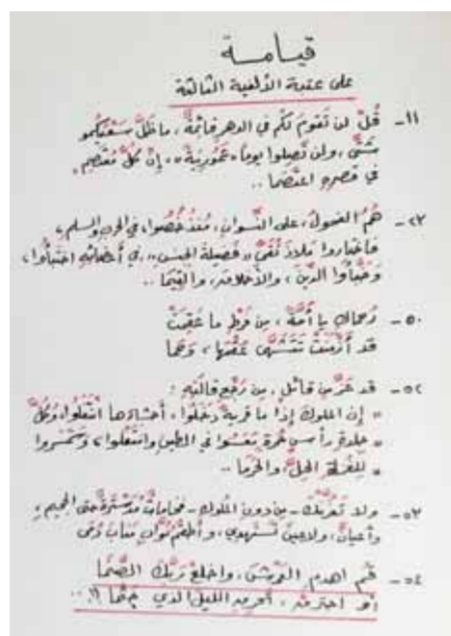 قيامة
على عتبة الألفية الثالثة
١١- قُلْ لن تَقومَ لكُم في الدهر قائمةٌ، ما ظلَّ سَعْيُكُمو
شتّى، ولن تَصِلوا يوماً «عَمُّوريةً»، إنْ كلُّ مُعْتَصِمٍ
في قصرِهِ اعتصما..
هُمُ الفحولُ، على النِّسوانِ، مُنذُ خُصُوا، في الحربِ والسلمِ،
فاختاروا ملاذَ تُقىً «فضيلةَ الجنسِ»، في أحضانِهِ اختبأوا،
وخبَّأوا الدينَ، والأخلاقَ، والقِيَما..
٥٠- رُحماكِ يا أمّةً، من فَرْطِ ما عَقِمَتْ
قد أزمَنَتْ تتشهّى عُقْمَها، وَحَما
٥٢- قد عَزَّ من قائلٍ، من رَجْعِ قالتِهِ:
» إن الملوك إذا ما قريةً دخلوا، أحشاءَها انتعلوا، وكلَّ
» جلدةِ رأسٍ حُرّةٍ في الطينِ وانتعلوا، وشمَّروا
» الحِلَّ، والحَرَما..
٥٣- ولا تَغُرَّنْكَ - من دونِ الملوكِ - حتى الجحيم،
وأعيانٌ، ولاعبنَ
٥٤- قُم اهدم العرشَ، واخلع ربَّكَ الصَّنَما
أو احترقْ، أحرقِ الليلَ الذي جثما !!..